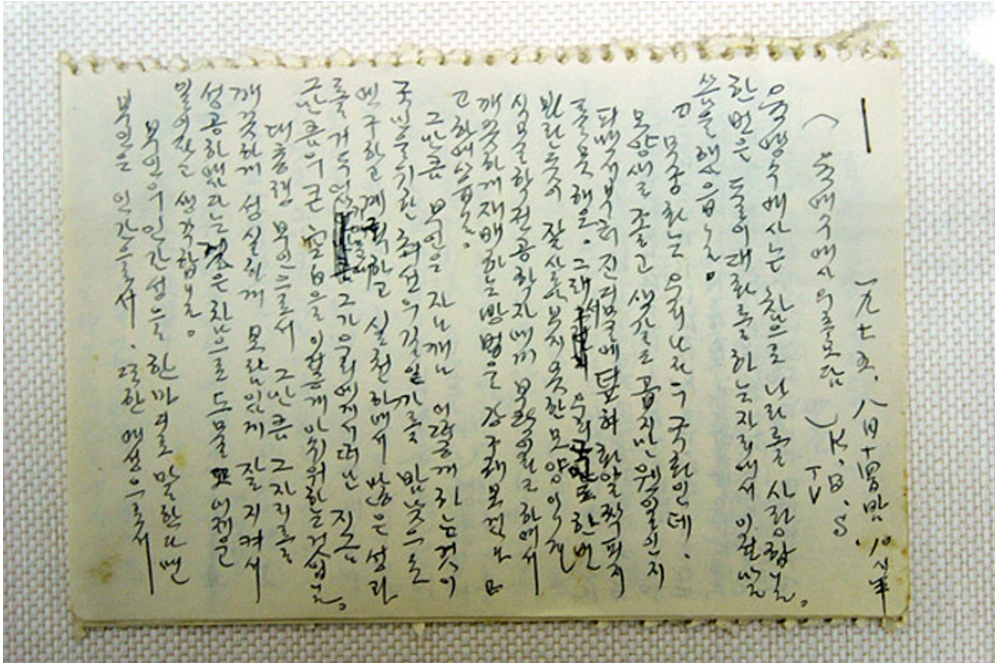 一九七五. 八月十四日밤. 10시半
( 육영수여사의추모담 ) K.B.S. TV
육영수여사는 참으로 나라를 사랑합니다.
한번은 둘이 대화를 하는자리에서 이런말
씀을했읍니다.
무궁화는 우리나라 국화인데.
모양새도 좋고 색갈도 곱지만 웬일인지
진디물에 활짝피지
를 못해요. 그래서 우리 한번
잘 못한 모양이
식물학전공학자에게 부탁이라도하여서
깨끗하게재배하는방법을 강구해보겠다
고 하였읍니다.
그만큼 부인은 자나깨나 어떻게하는것이
국민을위한 최선의길일까를 밤낮으로
연구하고 계획하고 실천하면서 많은 성과
를 거두었 그가우리에게서떠난 지금
그만큼의큰 空白을 이렇게 아쉬워하는것입니다.
대통령 부인으로서 그만큼 그자리를
깨끗하게 성실하게 보람있게 잘지켜서
성공하였다는 것은참으로 드물고 어려운
일이라고 생각합니다.
부인의인간성을한마디로 말한다면
부인은 인간으로서. 또한 여성으로서